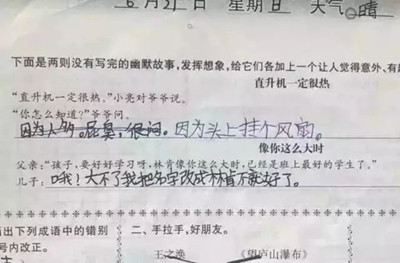 6月21日 星期日 天气:晴
下面是两则没有写完的幽默故事,发挥想象,给它们各加上一个让人觉得意外、有趣
直升机一定很热
“直升机一定很热。”小亮对爷爷说。
“你怎么知道?”爷爷问。
因为人多。屁臭,很闷。因为头上挂个风扇。
像你这么大时
父亲:“孩子,要好好学习呀,林肯像你这么大时,已经是班上最好的学生了。”
儿子:哦!大不了我把名字改成林肯不就好了。
出下列成语中的错别
号内改正。
二、手拉手,好朋友。
王之涣 《望庐山瀑布》